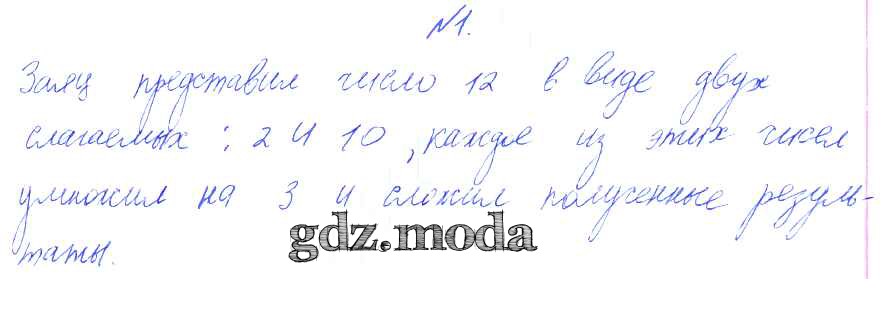 №1.
Заяц представил число 12 в виде двух
слагаемых: 2 и 10, каждое из этих чисел
умножил на 3 и сложил полученные резуль-
таты.
gdz.moda